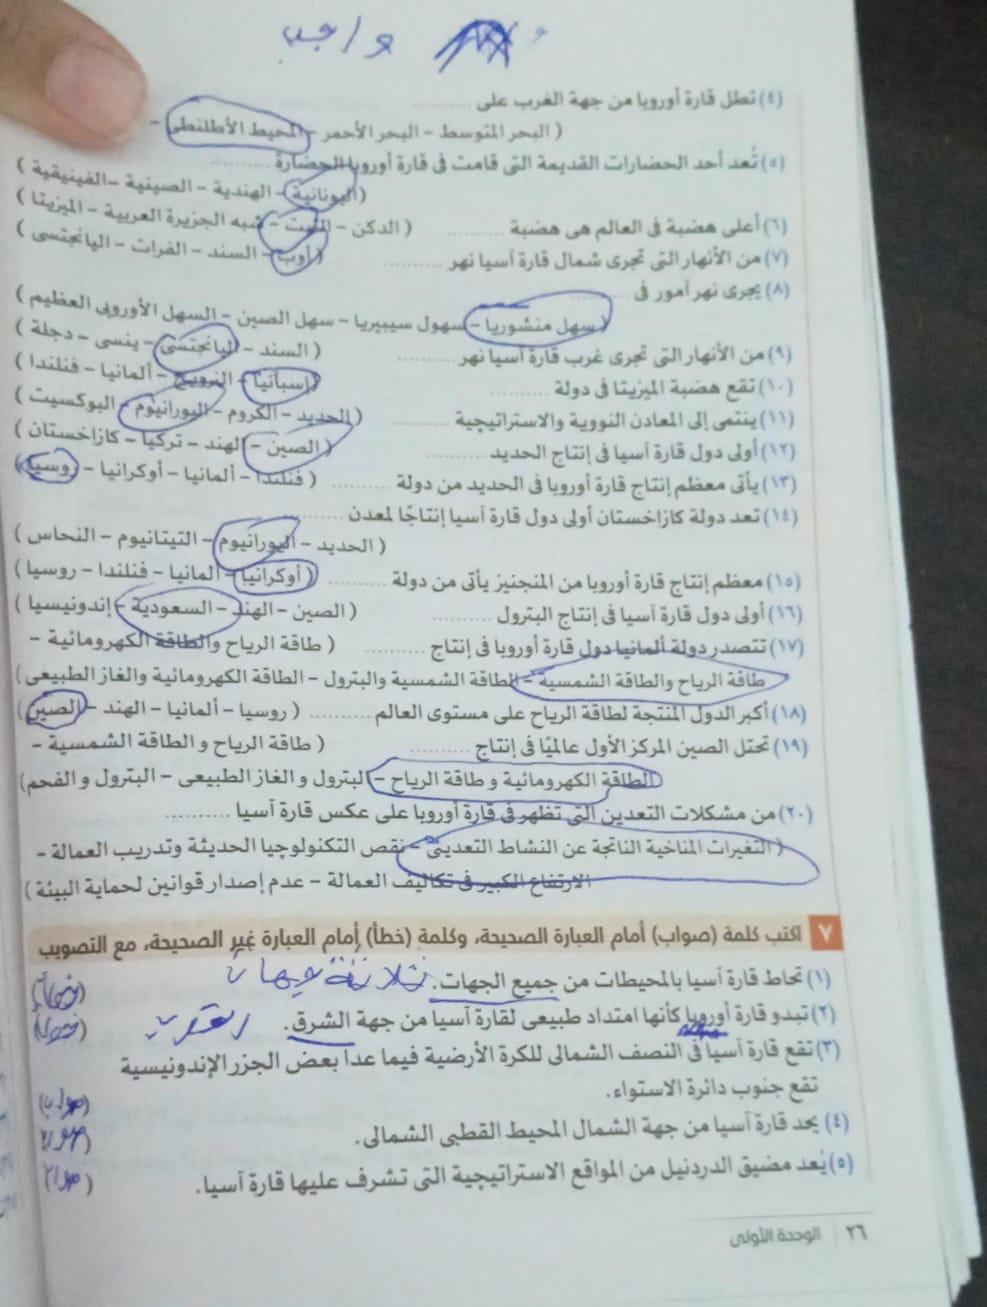 واجب
(٤) تطل قارة أوروبا من جهة الغرب على ..........
( البحر المتوسط - البحر الأحمر - المحيط الأطلنطى -
(٥) تُعد أحد الحضارات القديمة التى قامت فى قارة أوروبا الحضارة ..........
( اليونانية - الهندية - الصينية - الفينيقية )
(٦) أعلى هضبة فى العالم هى هضبة .......... ( الدكن - التبت - شبه الجزيرة العربية - الميزيتا )
(٧) من الأنهار التى تجرى شمال قارة آسيا نهر .......... ( أوب - السند - الفرات - اليانجتسى )
(٨) يجرى نهر آمور فى ..........
( سهل منشوريا - سهول سيبيريا - سهل الصين - السهل الأوروبى العظيم )
(٩) من الأنهار التى تجرى غرب قارة آسيا نهر .......... ( السند - اليانجتسى - ينسى - دجلة )
(١٠) تقع هضبة الميزيتا فى دولة .......... ( إسبانيا - النرويج - ألمانيا - فنلندا )
(١١) ينتمى إلى المعادن النووية والاستراتيجية .......... ( الحديد - الكروم - اليورانيوم - البوكسيت )
(١٢) أولى دول قارة آسيا فى إنتاج الحديد .......... ( الصين - الهند - تركيا - كازاخستان )
(١٣) يأتى معظم إنتاج قارة أوروبا فى الحديد من دولة .......... ( فنلندا - ألمانيا - أوكرانيا - روسيا )
(١٤) تعد دولة كازاخستان أولى دول قارة آسيا إنتاجًا لمعدن ..........
( الحديد - اليورانيوم - التيتانيوم - النحاس )
(١٥) معظم إنتاج قارة أوروبا من المنجنيز يأتى من دولة .......... ( أوكرانيا - ألمانيا - فنلندا - روسيا )
(١٦) أولى دول قارة آسيا فى إنتاج البترول .......... ( الصين - الهند - السعودية - إندونيسيا )
(١٧) تتصدر دولة ألمانيا دول قارة أوروبا فى إنتاج .......... ( طاقة الرياح والطاقة الكهرومائية -
طاقة الرياح والطاقة الشمسية - الطاقة الشمسية والبترول - الطاقة الكهرومائية والغاز الطبيعى )
(١٨) أكبر الدول المنتجة لطاقة الرياح على مستوى العالم .......... ( روسيا - ألمانيا - الهند - الصين )
(١٩) تحتل الصين المركز الأول عالميًا فى إنتاج .......... ( طاقة الرياح والطاقة الشمسية -
الطاقة الكهرومائية وطاقة الرياح - البترول والغاز الطبيعى - البترول والفحم )
(٢٠) من مشكلات التعدين التى تظهر فى قارة أوروبا على عكس قارة آسيا ..........
( التغيرات المناخية الناتجة عن النشاط التعدينى - نقص التكنولوجيا الحديثة وتدريب العمالة -
الارتفاع الكبير فى تكاليف العمالة - عدم إصدار قوانين لحماية البيئة )
٧ اكتب كلمة (صواب) أمام العبارة الصحيحة، وكلمة (خطأ) إمام العبارة غير الصحيحة، مع التصويب
(١) تحاط قارة آسيا بالمحيطات من جميع الجهات. ثلاثة جهات (خطأ)
(٢) تبدو قارة أوروبا كأنها امتداد طبيعى لقارة آسيا من جهة الشرق. الغرب (خطأ)
(٣) تقع قارة آسيا فى النصف الشمالى للكرة الأرضية فيما عدا بعض الجزر الإندونيسية
تقع جنوب دائرة الاستواء. (صواب)
(٤) يحد قارة آسيا من جهة الشمال المحيط القطبى الشمالى. (صواب)
(٥) يُعد مضيق الدردنيل من المواقع الاستراتيجية التى تشرف عليها قارة آسيا. (صواب)
٢٦ | الوحدة الأولى